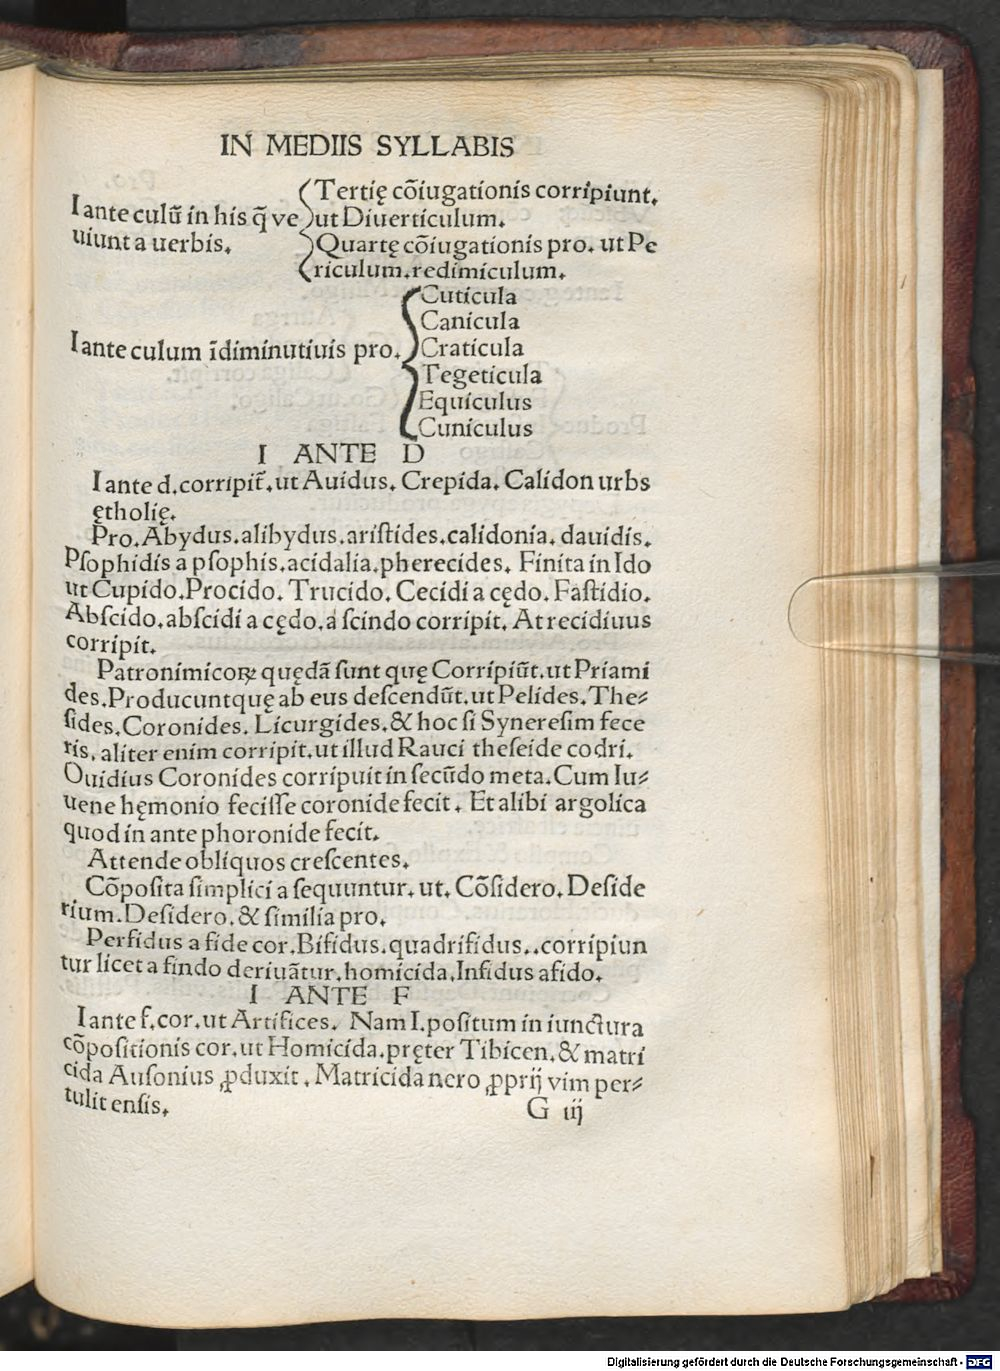 IN MEDIIS SYLLABIS
Tertię cõiugationis corripiunt.
I ante culũ in his q̃ ve
ut Diuerticulum.
uiunt a uerbis.
Quartę cõiugationis pro. ut Pe
riculum. redimiculum.
Cuticula
Canicula
I ante culum ĩ diminutiuis pro.
Craticula
Tegeticula
Equiculus
Cuniculus
I ANTE D
I ante d. corripit̃. ut Auidus. Crepida. Calidon urbs
ętholię.
Pro. Abydus. alibydus. ariſtides. calidonia. dauidis.
Pſophidis a pſophis. acidalia. pherecides. Finita in Ido
ut Cupido. Procido. Trucido. Cecidi a cędo. Faſtidio.
Abſcido. abſcidi a cędo. a ſcindo corripit. At recidiuus
corripit.
Patronimicoꝝ quędã ſunt quę Corripiũt. ut Priami
des. Producuntquę ab eus deſcendũt. ut Pelides. The⸗
ſides. Coronides. Licurgides. & hoc ſi Synereſim fece
ris. aliter enim corripit. ut illud Rauci theſeide codri.
Ouidius Coronides corripuit in ſecũdo meta. Cum Iu⸗
uene hęmonio feciſſe coronide fecit. Et alibi argolica
quod in ante phoronide fecit.
Attende obliquos creſcentes.
Cõpoſita simplici a ſequuntur. ut. Cõſidero. Deſide
rium. Deſidero. & ſimilia pro.
Perfidus a fide cor. Bifidus. quadrifidus.. corripiun
tur licet a findo deriuãtur. homicida. Infidus a fido.
I ANTE F
I ante f. cor. ut Artifices. Nam I. poſitum in iunctura
cõpoſitionis cor. ut Homicida. pręter Tibicen. & matri
cida Auſonius ꝓduxit. Matricida nero ꝓprij vim per⸗
tulit enſis.
G iij
Digitalisierung gefördert durch die Deutsche Forschungsgemeinschaft - DFG